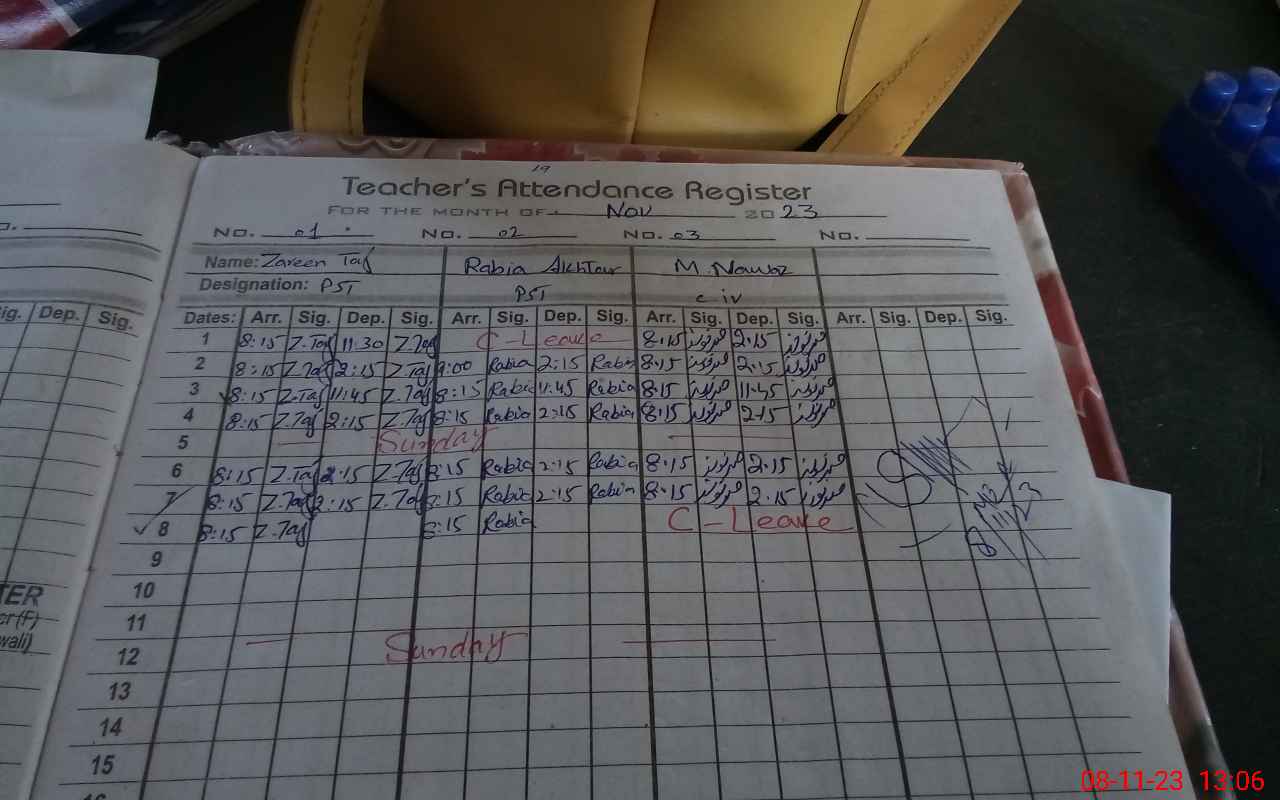 19
Teacher's Attendance Register
FOR THE MONTH OF Nov 2023
No. 01 No. 02 No. 03 No.
Name: Zareen Taj Rabia Akhtar M. Nawaz
Designation: PST PST c iv
ig. Dep. Sig. Dates: Arr. Sig. Dep. Sig. Arr. Sig. Dep. Sig. Arr. Sig. Dep. Sig. Arr. Sig. Dep. Sig.
1 8:15 Z.Taj 11:30 Z.Taj C-Leave 8:15 2:15
2 8:15 Z.Taj 2:15 Z.Taj 9:00 Rabia 2:15 Rabia 8:15 2:15
3 8:15 Z.Taj 11:45 Z.Taj 8:15 Rabia 11:45 Rabia 8:15 11:45
4 8:15 Z.Taj 2:15 Z.Taj 8:15 Rabia 2:15 Rabia 8:15 2:15
5 Sunday
6 8:15 Z.Taj 2:15 Z.Taj 8:15 Rabia 2:15 Rabia 8:15 2:15
7 8:15 Z.Taj 2:15 Z.Taj 8:15 Rabia 2:15 Rabia 8:15 2:15
8 8:15 Z.Taj 8:15 Rabia C-Leave
9
10
11
12 Sunday
13
14
15
TER
er (F)
wali)
08-11-23 13:06